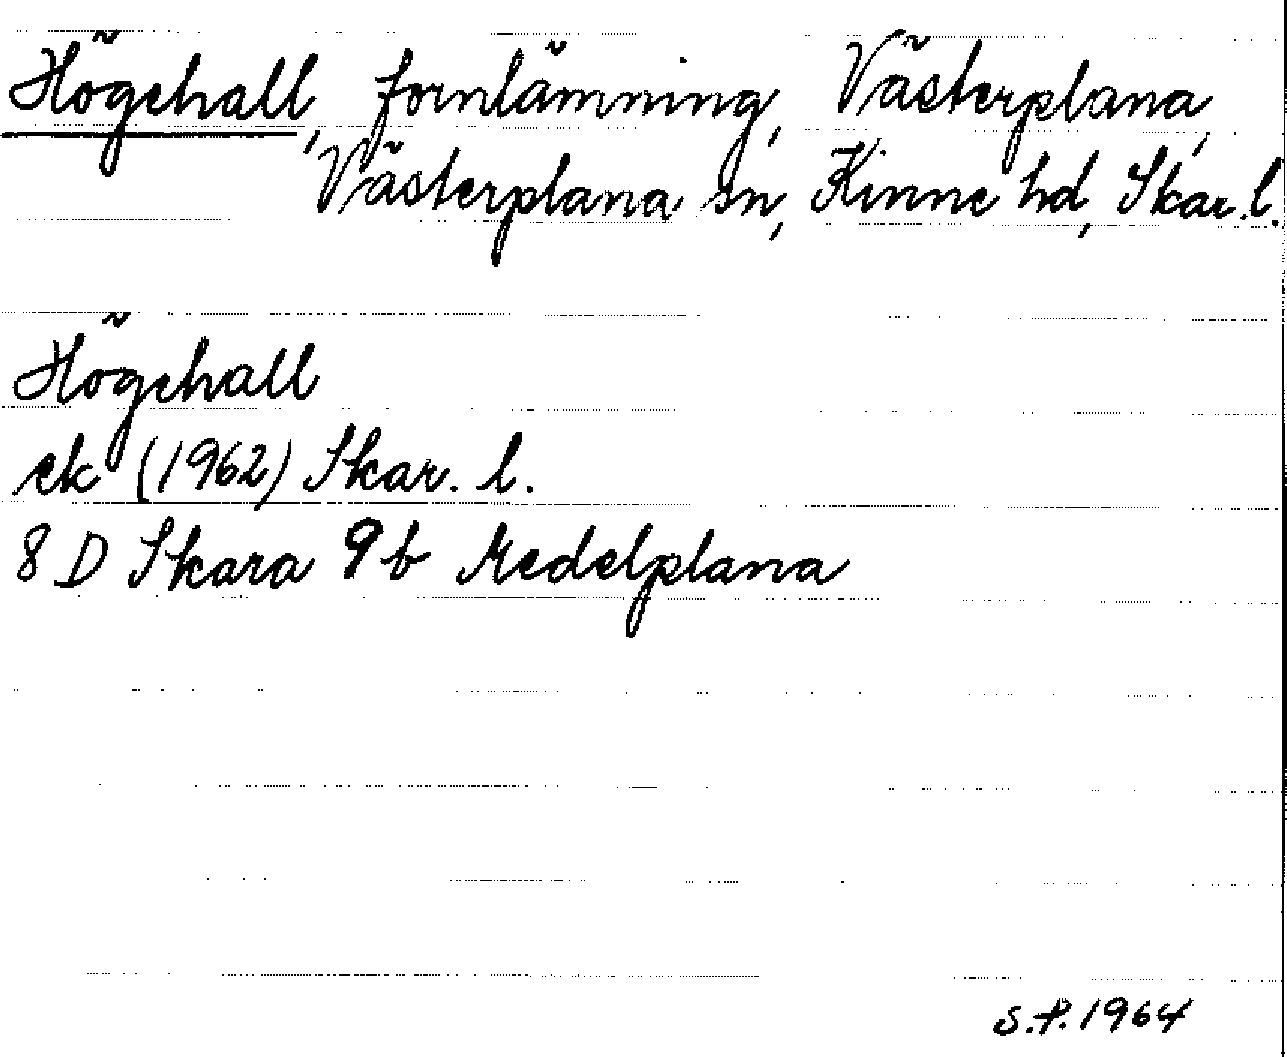 Högehall, fornlämning, Västerplana,
Västerplana sn, Kinne hd, Skar. l.
Högehall
ek (1962) Skar. l.
8 D Skara 9 b Medelplana
S.P. 1964